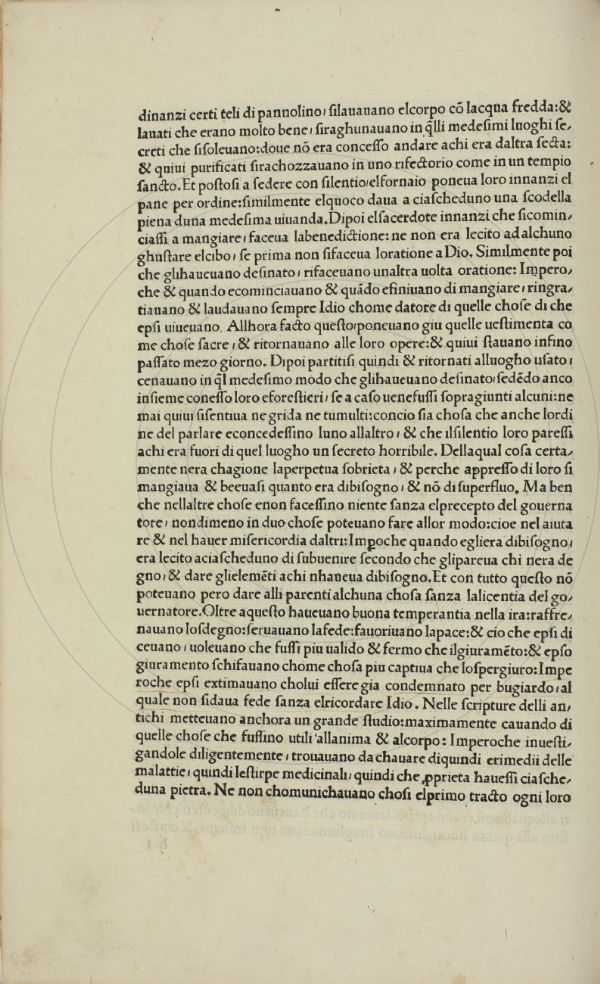 dinanzi certi teli di pannolino, ſilauauano elcorpo cõ lacqua fredda:&
lauati che erano molto bene, ſiraghunauano in q̃lli medeſimi luoghi ſe,
creti che ſiſoleuano:doue nõ era conceſſo andare achi era daltra ſecta:
& quiui purificati ſirachozzauano in uno rifectorio come in un tempio
ſancto. Et poſtoſi a ſedere con ſilentio, elfornaio poneua loro innanzi el
pane per ordine:ſimilmente elquoco daua a ciaſcheduno una ſcodella
piena duna medeſima uiuanda. Dipoi elſacerdote innanzi che ſicomin,
ciaſſi a mangiare, faceua labenedictione: ne non era lecito ad alchuno
ghuſtare elcibo, ſe prima non ſifaceua loratione a Dio. Similmente poi
che glihaueuano deſinato, rifaceuano unaltra uolta oratione: Impero,
che & quando ecominciauano & quãdo efiniuano di mangiare, ringra,
tiauano & laudauano ſempre Idio chome datore di quelle choſe di che
epſi uiueuano. Allhora facto queſto, poneuano giu quelle ueſtimenta co
me choſe ſacre, & ritornauano alle loro opere:& quiui ſtauano infino
paſſato mezo giorno. Dipoi partitiſi quindi & ritornati alluogho uſato,
cenauano in q̃l medeſimo modo che glihaueuano deſinato, ſedẽdo anco
inſieme coneſſo loro eforeſtieri, ſe a caſo uenefuſſi ſopragiunti alcuni:ne
mai quiui ſiſentiua ne grida ne tumulti:concio ſia choſa che anche lordi
ne del parlare econcedeſſino luno allaltro, & che ilſilentio loro pareſſi
achi era fuori di quel luogho un ſecreto horribile. Dellaqual coſa certa,
mente nera chagione laperpetua ſobrieta, & perche appreſſo di loro ſi
mangiaua & beeuaſi quanto era dibiſogno, & nõ di ſuperfluo. Ma ben
che nellaltre choſe enon faceſſino niente ſanza elprecepto del gouerna
tore, nondimeno in duo choſe poteuano fare allor modo:cioe nel aiuta
re & nel hauer miſericordia daltri: Imp̱oche quando egliera dibiſogno,
era lecito aciaſcheduno di ſubuenire ſecondo che glipareua chi nera de
gno, & dare glielemẽti achi nhaueua dibiſogno. Et con tutto queſto nõ
poteuano pero dare alli parenti alchuna choſa ſanza lalicentia del go,
uernatore. Oltre aqueſto haueuano buona temperantia nella ira:raffre,
nauano loſdegno:ſeruauano lafede:fauoriuano lapace:& cio che epſi di
ceuano, uoleuano che fuſſi piu ualido & fermo che ilgiuramẽto:& epſo
giuramento ſchifauano chome choſa piu captiua che loſpergiuro:Impe
roche epſi extimauano cholui eſſere gia condemnato per bugiardo, al
quale non ſidaua fede ſanza elricordare Idio. Nelle ſcripture delli an,
tichi metteuano anchora un grande ſtudio:maximamente cauando di
quelle choſe che fuſſino utili allanima & alcorpo: Imperoche inueſti,
gandole diligentemente, trouauano da chauare diquindi erimedii delle
malattie, quindi leſtirpe medicinali, quindi che p̱prieta haueſſi ciaſche,
duna pietra. Ne non chomunichauano choſi elprimo tracto ogni loro